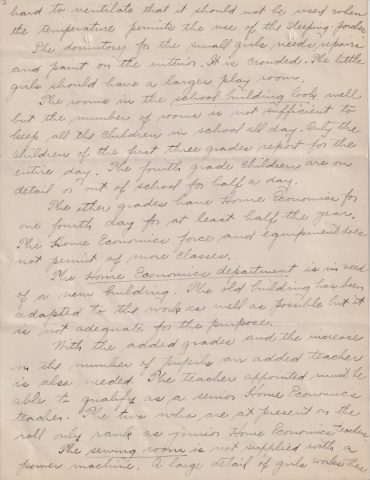 hard to ventilate that it should not be used when
the temperature permits the use of the sleeping porches
The dormitory for the small girls needs repairs
and paint on the interior. It is crowded. The little
girls should have a larger play room.
The rooms in the school building look well
but the number of rooms is not sufficient to
keep all the children in school all day. Only the
children of the first three grades report for the
entire day. The fourth grade children are on
detail or out of school for half a day.
The other grades have Home Economics for
one fourth day for at least half the year.
The Home Economics force and equipment does
not permit of more classes.
The Home Economics department is in need
of a new building. The old building has been
adapted to the work as well as possible but it
is not adequate for the purpose.
With the added grades and the increase
in the number of pupils an added teacher
is also needed. The teacher appointed must be
able to qualify as a senior Home Economics
teacher. The two who are at present on the
roll only rank as junior Home Economics teachers.
The sewing room is not supplied with a
power machine. A large detail of girls works there